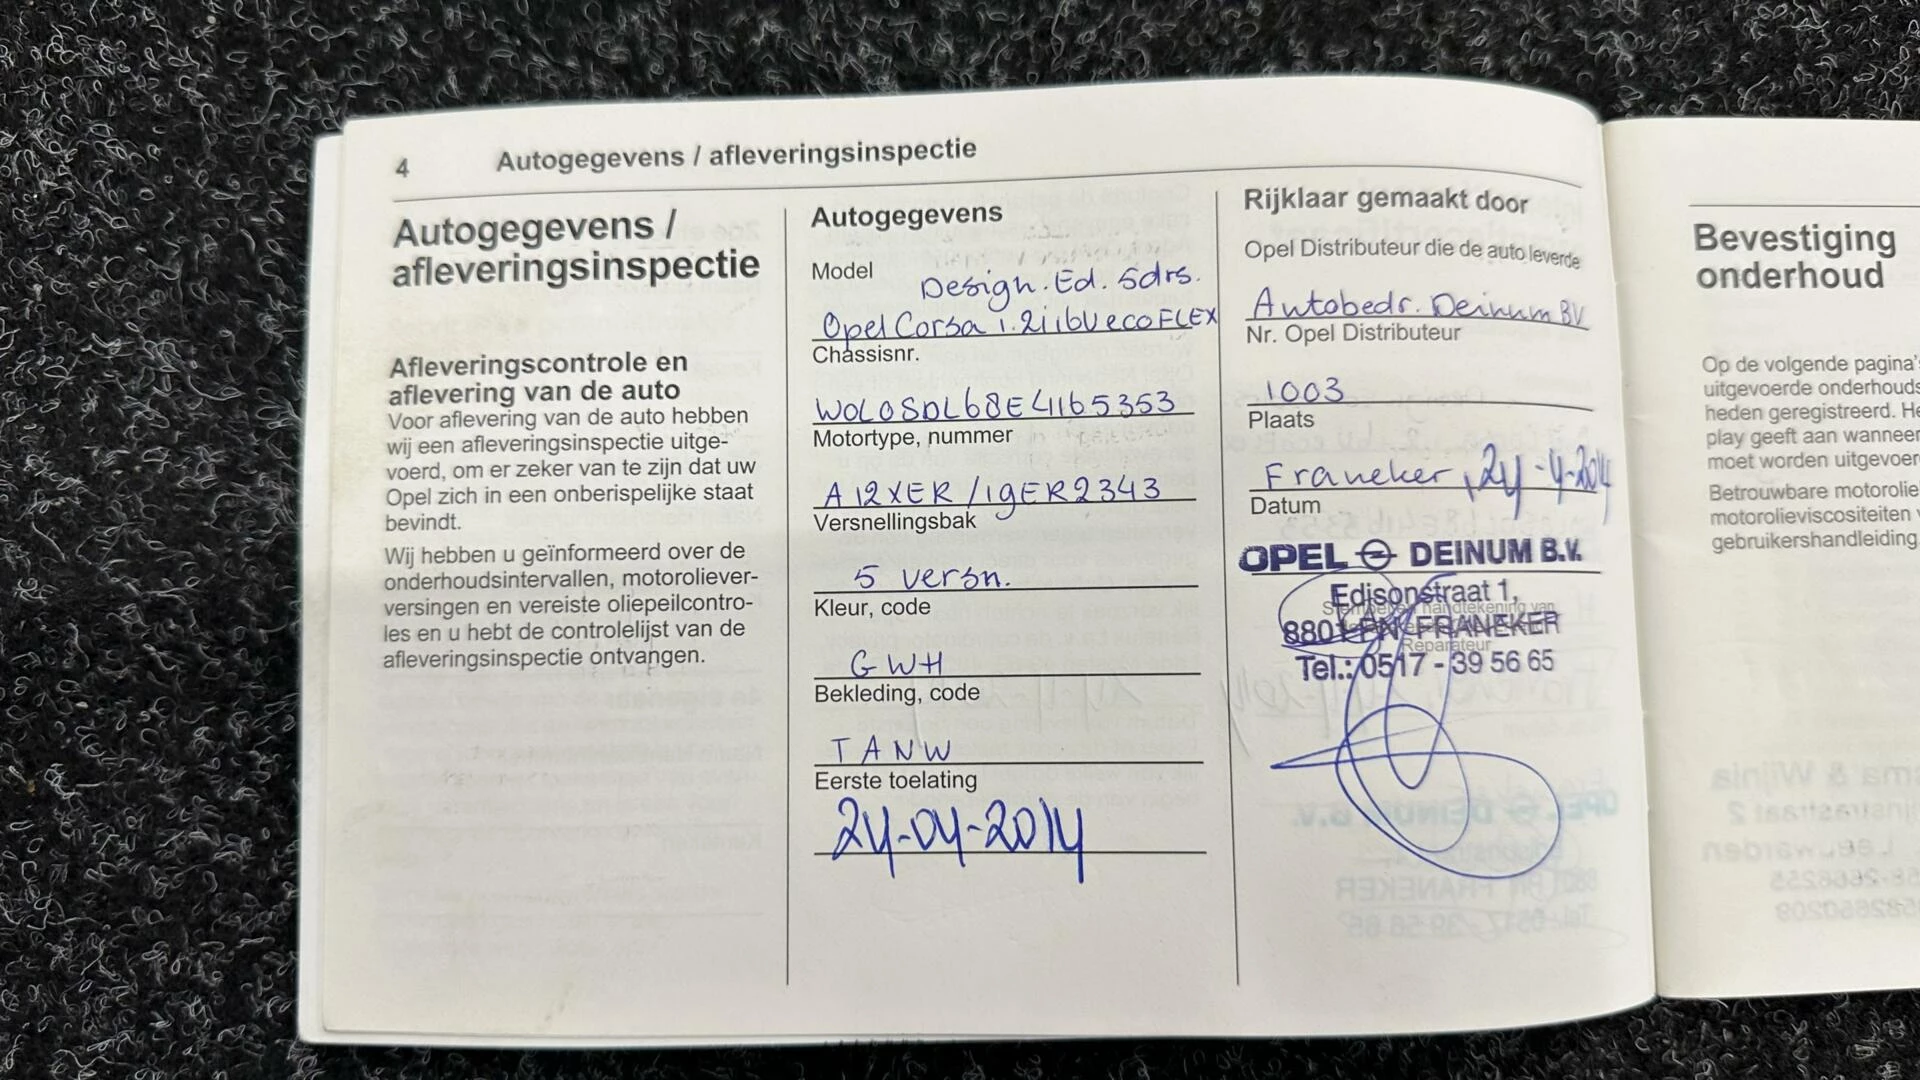 4 Autogegevens / afleveringsinspectie
Autogegevens /
afleveringsinspectie
Afleveringscontrole en
aflevering van de auto
Voor aflevering van de auto hebben
wij een afleveringsinspectie uitge-
voerd, om er zeker van te zijn dat uw
Opel zich in een onberispelijke staat
bevindt.
Wij hebben u geïnformeerd over de
onderhoudsintervallen, motoroliever-
versingen en vereiste oliepeilcontro-
les en u hebt de controlelijst van de
afleveringsinspectie ontvangen.
Autogegevens
Model
Design. Ed. 5drs.
Opel Corsa 1.2i 16V ecoFLEX
Chassisnr.
W0L0SDL68E4165353
Motortype, nummer
A12XER / 19ER2343
Versnellingsbak
5 versn.
Kleur, code
GWH
Bekleding, code
TANW
Eerste toelating
24-04-2014
Rijklaar gemaakt door
Opel Distributeur die de auto leverde
Autobedr. Deinum BV
Nr. Opel Distributeur
1003
Plaats
Franeker, 24-4-2014
Datum
OPEL DEINUM B.V.
Edisonstraat 1,
Stempel en handtekening van
8801 PN FRANEKER
Reparateur
Tel.: 0517 - 39 56 65
Bevestiging
onderhoud
Op de volgende pagina's
uitgevoerde onderhouds
heden geregistreerd. He
play geeft aan wanneer
moet worden uitgevoer
Betrouwbare motorolie
motorolieviscositeiten v
gebruikershandleiding